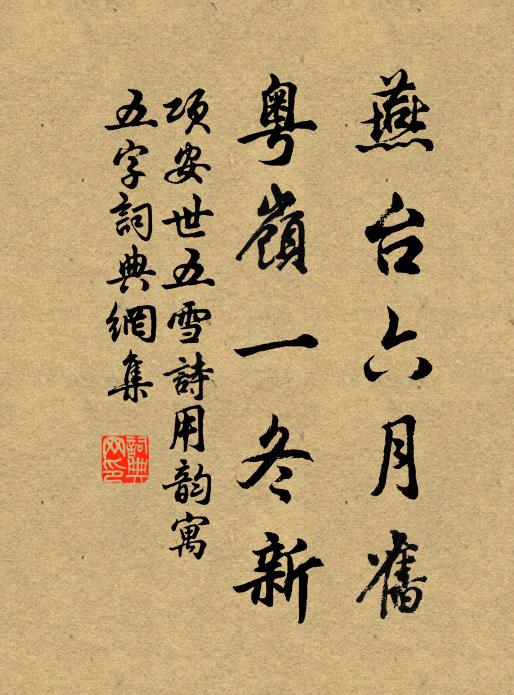 燕台六月舊
粤嶺一冬新
項安世五雪詩用韵寓
五字詞典網集
詞典
网印